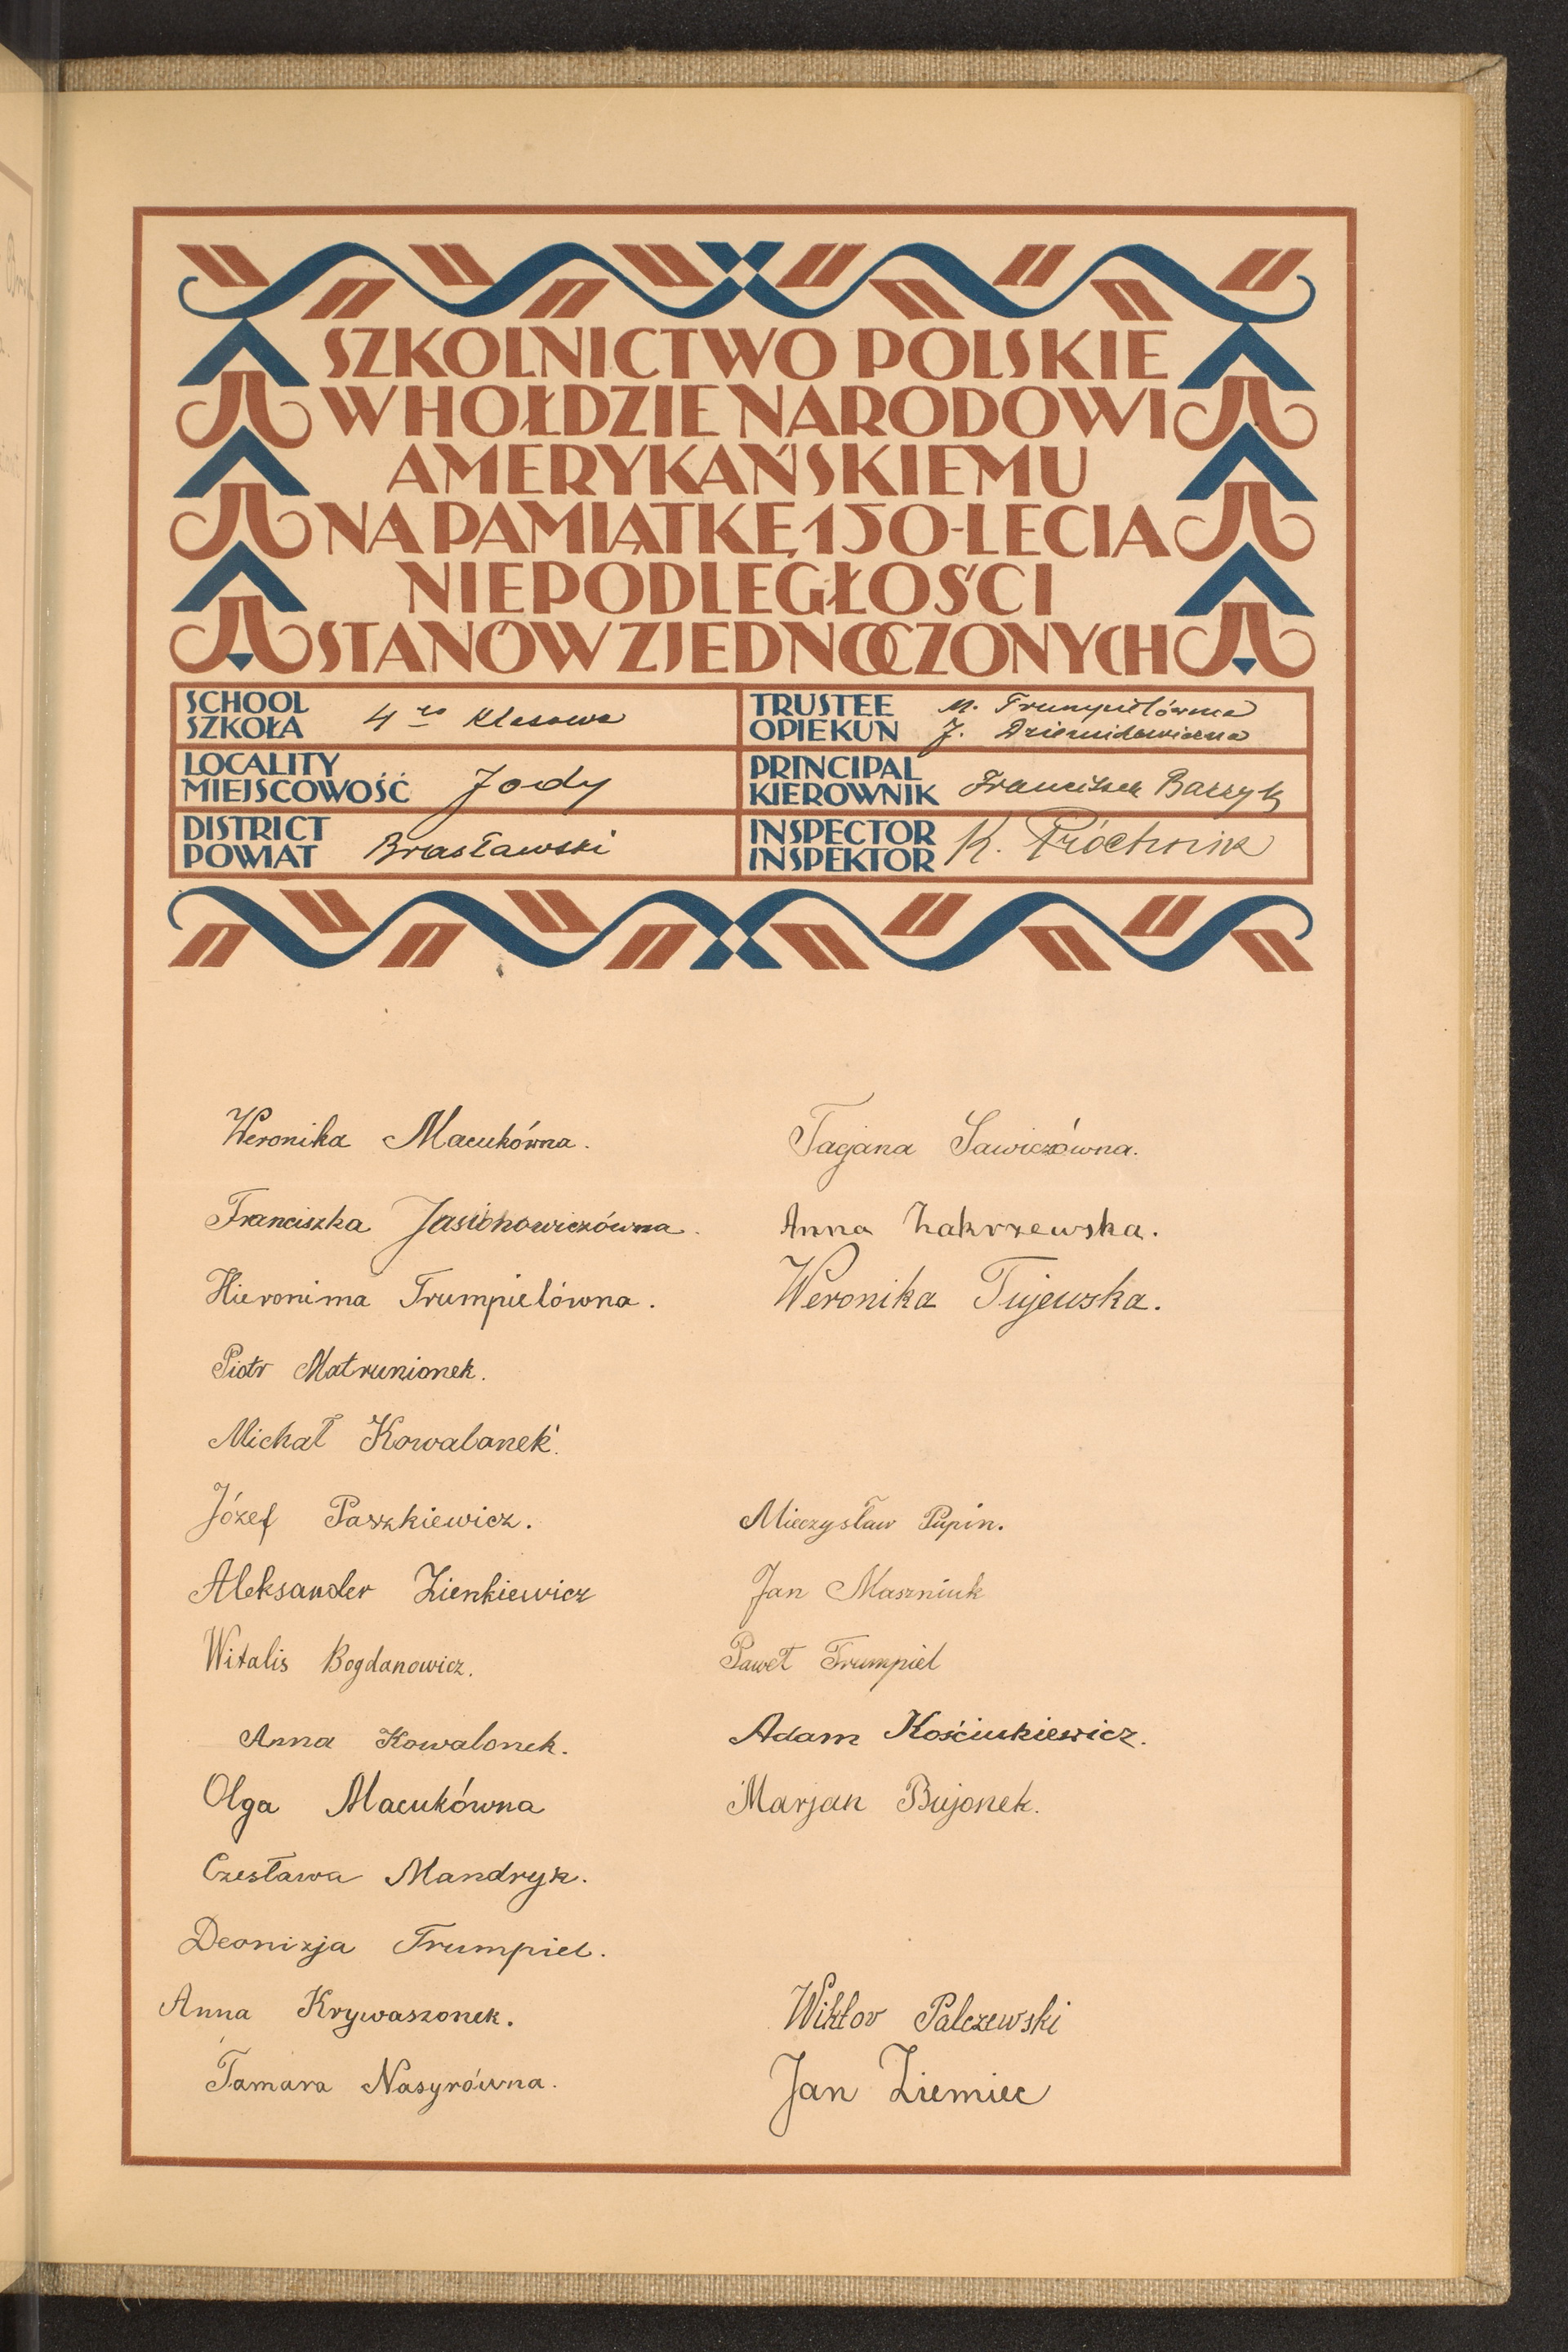 SZKOLNICTWO POLSKIE
W HOŁDZIE NARODOWI
AMERYKAŃSKIEMU
NA PAMIĄTKĘ 150-LECIA
NIEPODLEGŁOŚCI
STANÓW ZJEDNOCZONYCH
SCHOOL
SZKOŁA
4 ro klasowa
LOCALITY
MIEJSCOWOŚĆ
Jody
DISTRICT
POWIAT
Brasławski
TRUSTEE
OPIEKUN
M. Trumpielówna
J.
PRINCIPAL
KIEROWNIK
Franciszek Barzyk
INSPECTOR
INSPEKTOR
K. Próchnik
Weronika Macukówna.
Franciszka Jasionowiczówna.
Hieronima Trumpielówna.
Piotr Matrunionek.
Michał Kowalonek.
Józef Paszkiewicz.
Aleksander Zienkiewicz
Witalis Bogdanowicz.
Anna Kowalonek.
Olga Macukówna
Czesława Mandryk.
Deonizja Trumpiel.
Anna Krywaszonek.
Tamara Nasyrówna.
Tagjana Sawiczówna.
Anna Zakrzewska.
Weronika Tujewska.
Mieczysław Pupin.
Jan Maszniuk
Paweł Trumpiel
Adam Kościukiewicz.
Marjan Bujonek.
Wiktor Palczewski
Jan Ziemiec